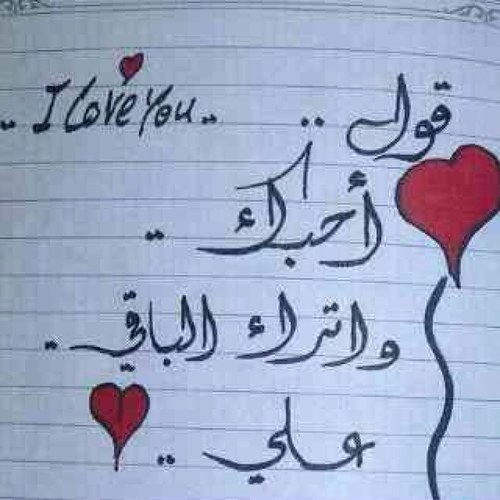 .. I Love You .. قول ..
أحبك ..
واترك الباقي ..
علي ..